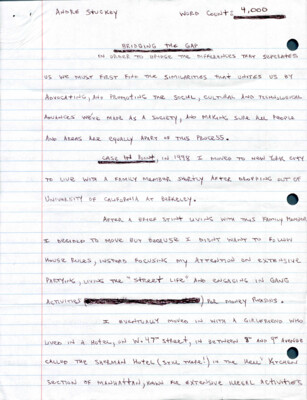 ANDRE STUCKEY WORD COUNT: 4,000
BRIDGING THE GAP
IN ORDER TO DIVIDE THE DIFFERENCES THAT SEPERATES
US WE MUST FIRST FIND THE SIMILARITIES THAT UNITES US BY
ADVOCATING, AND PROMOTING THE SOCIAL, CULTURAL AND TECHNOLOGICAL
ADVANCES WE'VE MADE AS A SOCIETY, AND MAKING SURE ALL PEOPLE
AND AREAS ARE EQUALLY APART OF THIS PROCESS.
CASE IN POINT, IN 1998 I MOVED TO NEW YORK CITY
TO LIVE WITH A FAMILY MEMBER SHORTLY AFTER DROPPING OUT OF
UNIVERSITY OF CALIFORNIA AT BERKELEY.
AFTER A BRIEF STINT LIVING WITH THIS FAMILY MEMBER
I DECIDED TO MOVE OUT BECAUSE I DIDN'T WANT TO FOLLOW
HOUSE RULES, INSTEAD FOCUSING MY ATTENTION ON EXTENSIVE
PARTYING, LIVING THE "STREET LIFE" AND ENGAGING IN GANG
ACTIVITIES FOR MONEY
I EVENTUALLY MOVED IN WITH A GIRLFRIEND WHO
LIVED IN A HOTEL, ON W. 47TH STREET, IN BETWEEN 8TH AND 9TH AVENUE
CALLED THE SHERMAN HOTEL (STILL THERE!) IN THE HELL'S KITCHEN
SECTION OF MANHATTAN, KNOWN FOR EXTENSIVE ILLEGAL ACTIVITIES